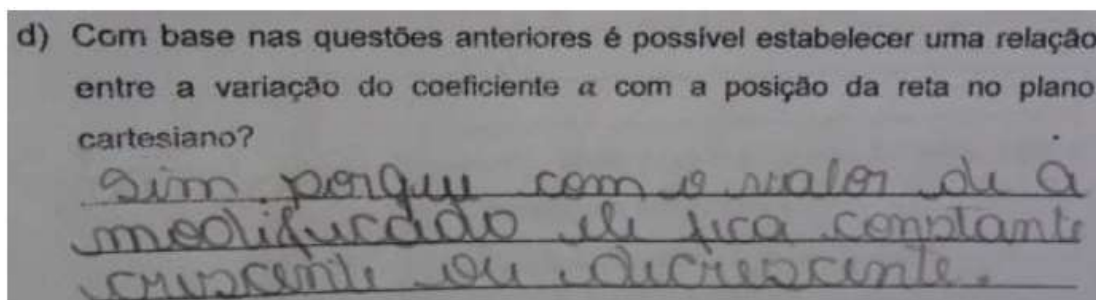 d) Com base nas questões anteriores é possível estabelecer uma relação
entre a variação do coeficiente a com a posição da reta no plano
cartesiano?
Sim. porque com o valor de a
modificado ele fica constante
crescente ou decrescente.